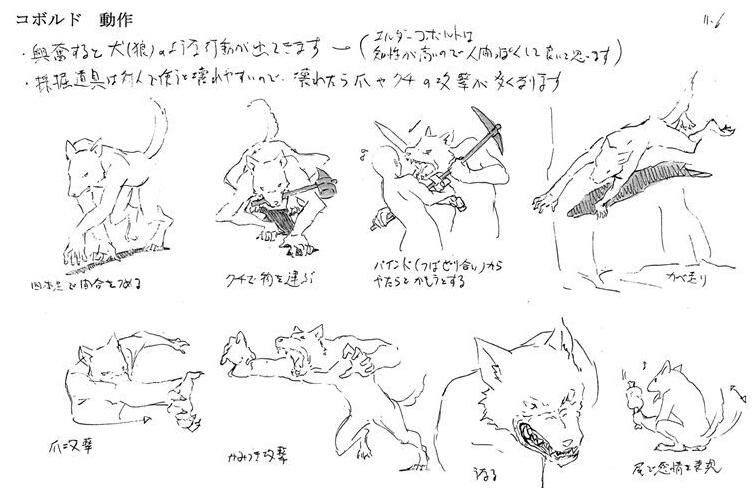 コボルド 動作
11.6
・興奮すると犬(狼)のような行動が出てきます → (エルダーコボルトは
知性が高いので人間ぽくして良いと思います)
・採掘道具は対人で使うと壊れやすいので、壊れたら爪やクチの攻撃が多くなります
四本足で間合をつめる
クチで物を運ぶ
バインド(つばぜり合い)から
やたらとかもうとする
かべ走り
爪攻撃
かみつき攻撃
うなる
尾で感情を表現